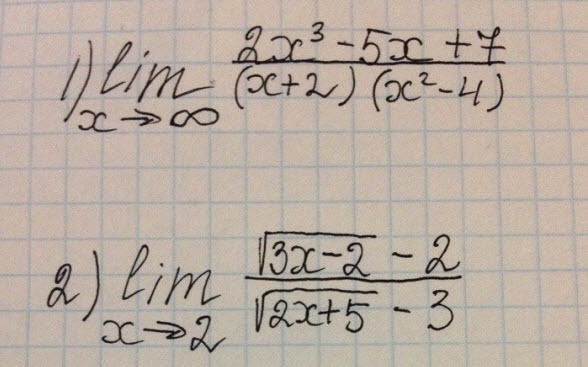 1) lim 2x³ - 5x + 7 / (x+2) (x² - 4)
x → ∞
2) lim √3x-2 - 2 / √2x+5 - 3
x → 2